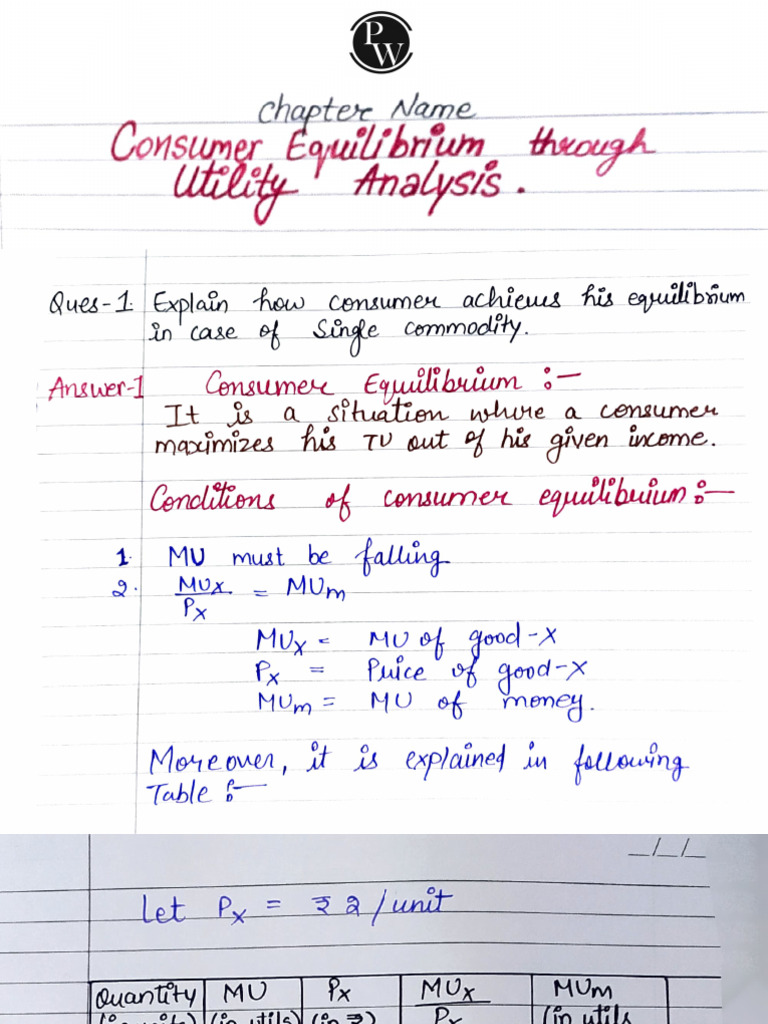 PW
Chapter Name
Consumer Equilibrium through
Utility Analysis.
Ques-1. Explain how consumer achieves his equilibrium
in case of Single commodity.
Answer-1 Consumer Equilibrium :-
It is a situation where a consumer
maximizes his TU out of his given income.
Conditions of consumer equilibrium :-
1. MU must be falling
2. MUx / Px = MUm
MUx = MU of good-x
Px = Price of good-x
MUm = MU of money.
Moreover, it is explained in following
Table :-
_/_/_
Let Px = ₹ 2/unit
Quantity MU Px MUx MUm
(in utils) (in ₹) Px (in utils